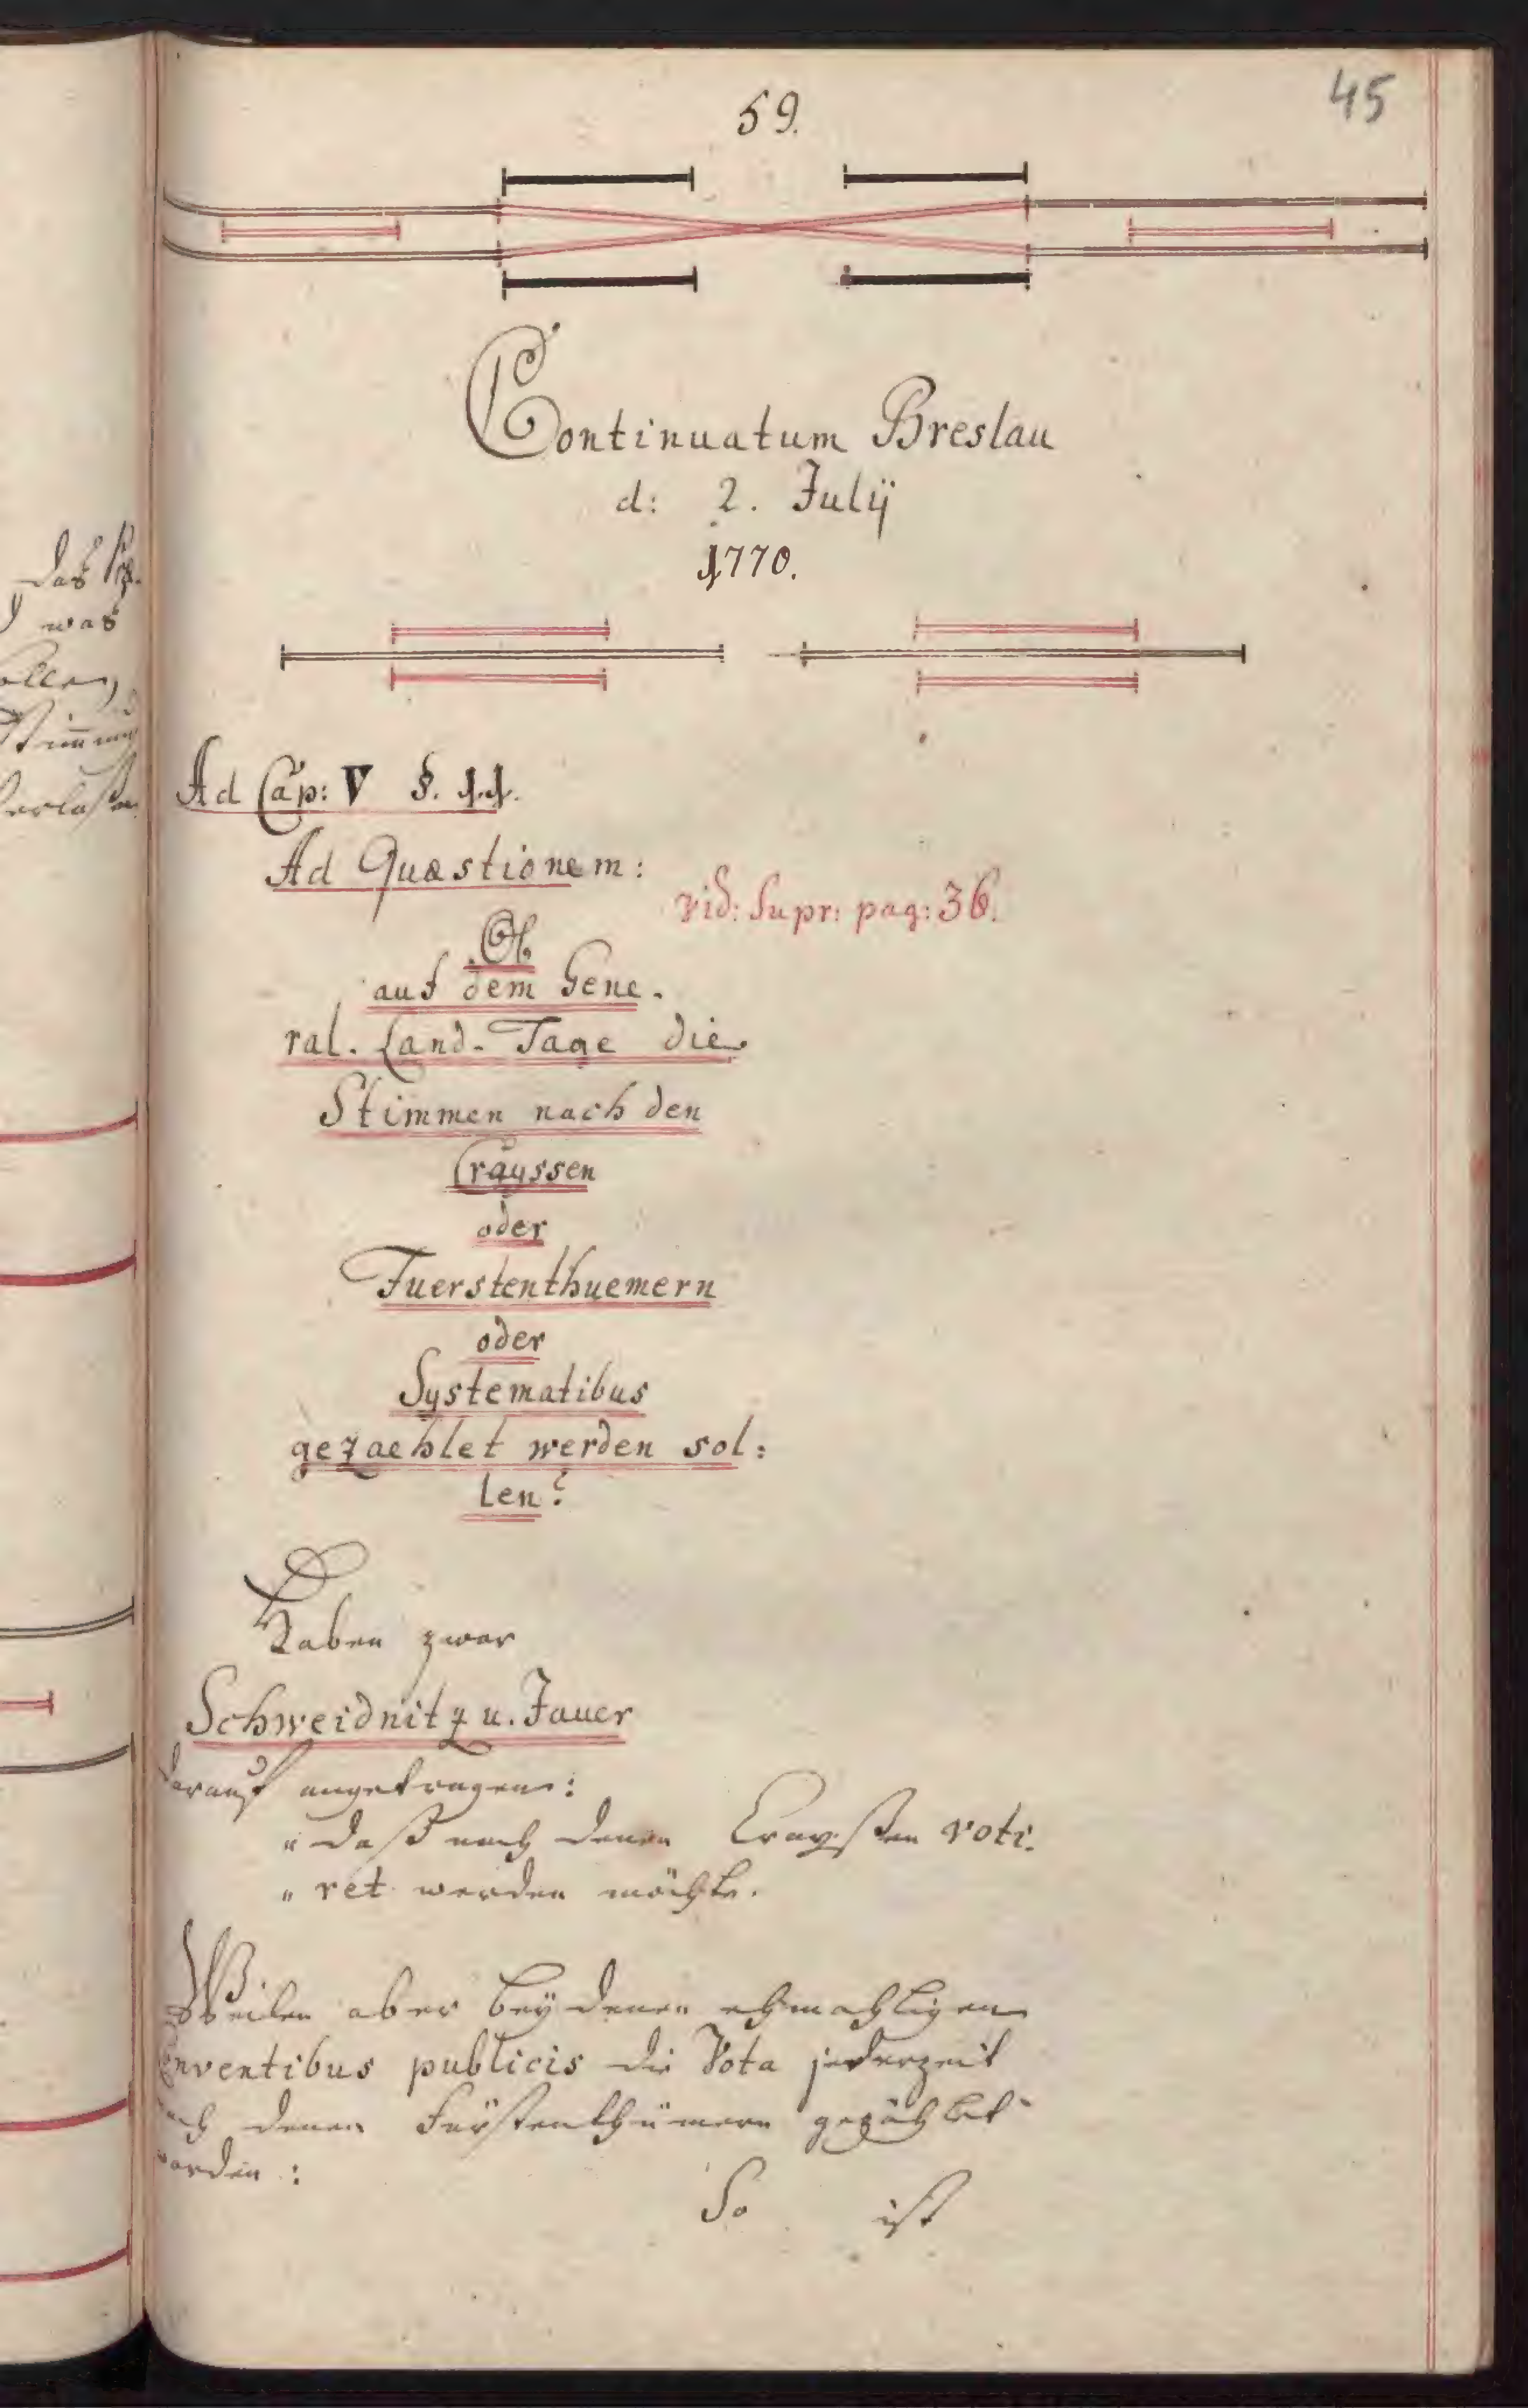 59.
45
Continuatum Breslau
d: 2. Julÿ
1770.
Ad Cap: V §. 11.
Ad Quæstionem:
vid: Supr: pag: 36.
Ob
auf dem Gene-
ral-Land-Tage die
Stimmen nach den
Cräyssen
oder
Fuerstenthuemern
oder
Systematibus
gezaehlet werden sol:
len?
Haben zwar
Schweidnitz u. Jauer
darauf angetragen:
"daß nach denen Crayßen voti-
"ret werden möchte.
Weilen aber beÿ denen ehmahligen
Conventibus publicis die Vota jederzeit
nach denen Fürstenthümern gezählet
worden:
So ist
das
was